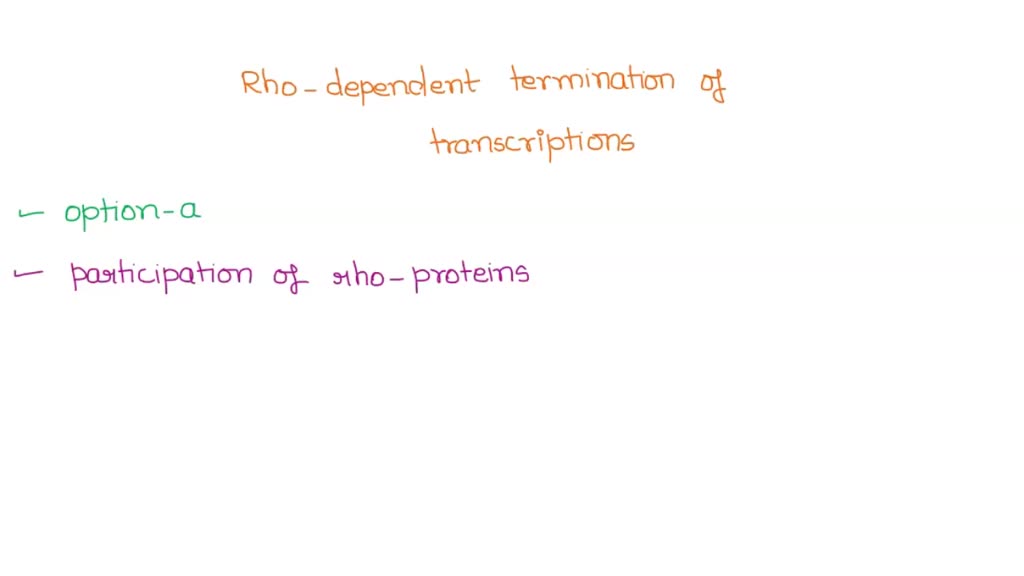 Rho-dependent termination of
transcriptions
- option-a
- participation of rho-proteins